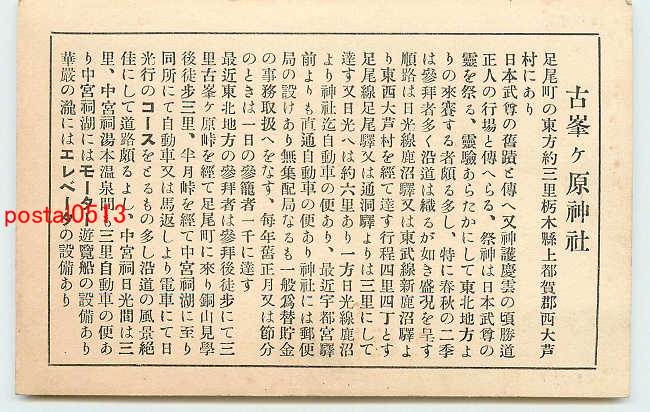 古峯ヶ原神社
足尾町の東方約三里栃木縣上都賀郡西大芦
村にあり
日本武尊の舊蹟と傳へ又神護慶雲の頃勝道
正人の行場と傳へらる、祭神は日本武尊の
靈を祭る、靈驗あらたかにして東北地方よ
りの來賽する者頗る多し、特に春秋の二季
は參拜者多く沿道は織るが如き盛況を呈す
順路は日光線鹿沼驛又は東武線新鹿沼驛よ
り東西大芦村を經て達す行程四里四丁とす
足尾線足尾驛又は通洞驛よりは三里にして
達す又日光へは約六里あり一方日光線鹿沼
より神社迄自動車の便あり、最近宇都宮驛
前よりも直通自動車の便あり神社には郵便
局の設けあり無集配局なるも一般爲替貯金
の事務取扱へをなす、每年舊正月又は節分
のときは一日の參籠者一千に達す
最近東北地方の參拜者は參拜後徒歩にて三
里古峯ヶ原峠を經て足尾町に來り銅山見學
後徒歩三里、半月峠を經て中宮祠湖に至り
同所にて自動車又は馬返しより電車にて日
光行のコースをとるもの多し沿道の風景絶
佳にして道路頗るよし、中宮祠日光間は三
里、中宮祠湯本温泉間も三里自動車の便あ
り中宮祠湖にはモーター遊覽船の設備あり
華嚴の瀧にはエレベータの設備あり
postal0513